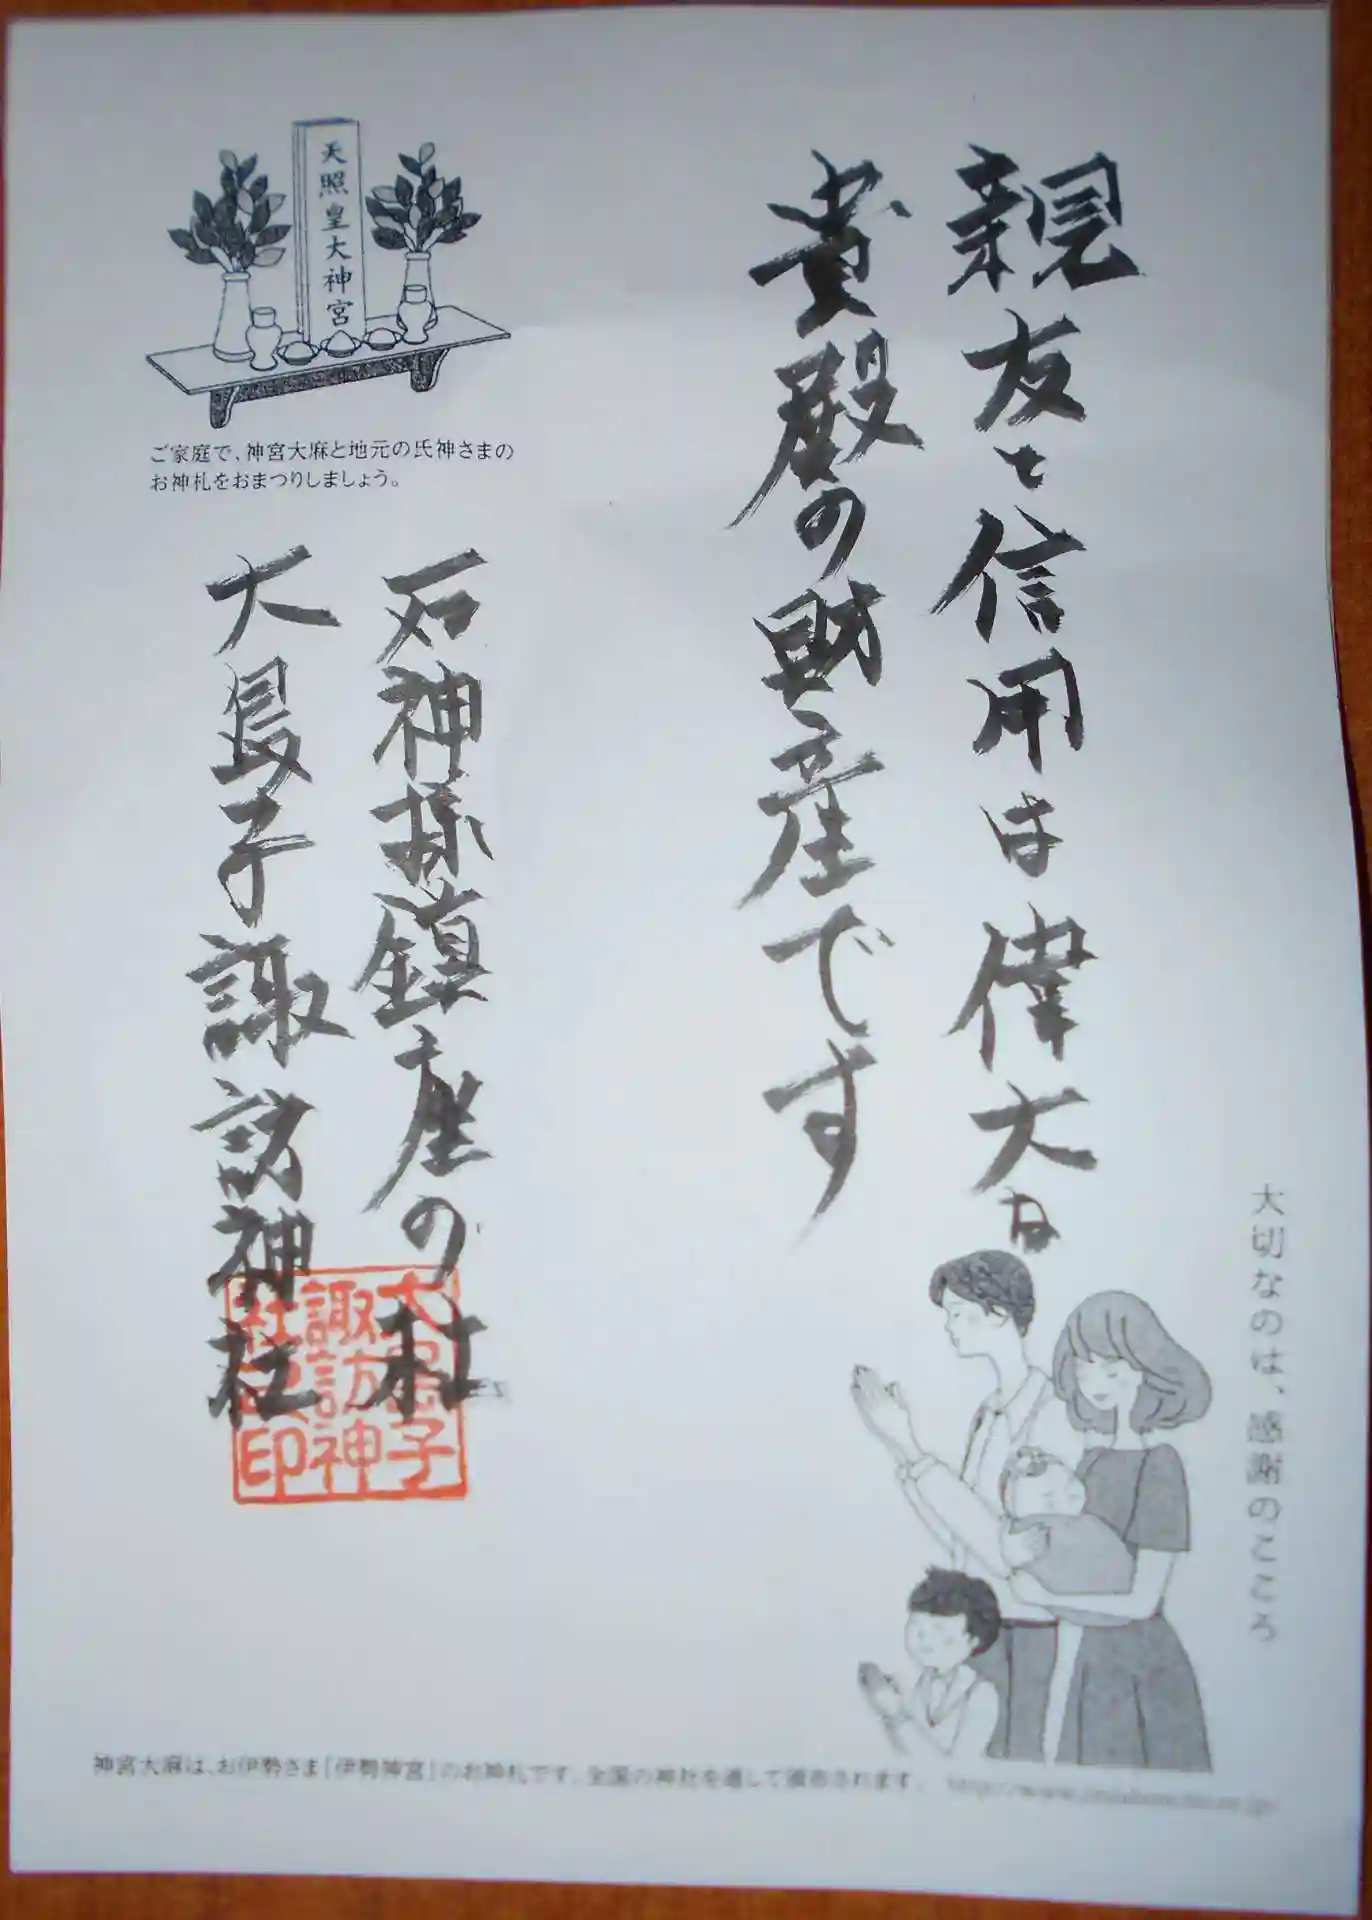 親友と信用は偉大な
貴殿の財産です
天照皇大神宮
ご家庭で、神宮大麻と地元の氏神さまの
お神札をおまつりしましょう。
石神様鎮座の杜
大島子諏訪神社
大島子
諏訪神
社之印
大切なのは、感謝のこころ
神宮大麻は、お伊勢さま「伊勢神宮」のお神札です。全国の神社を通して頒布されます。